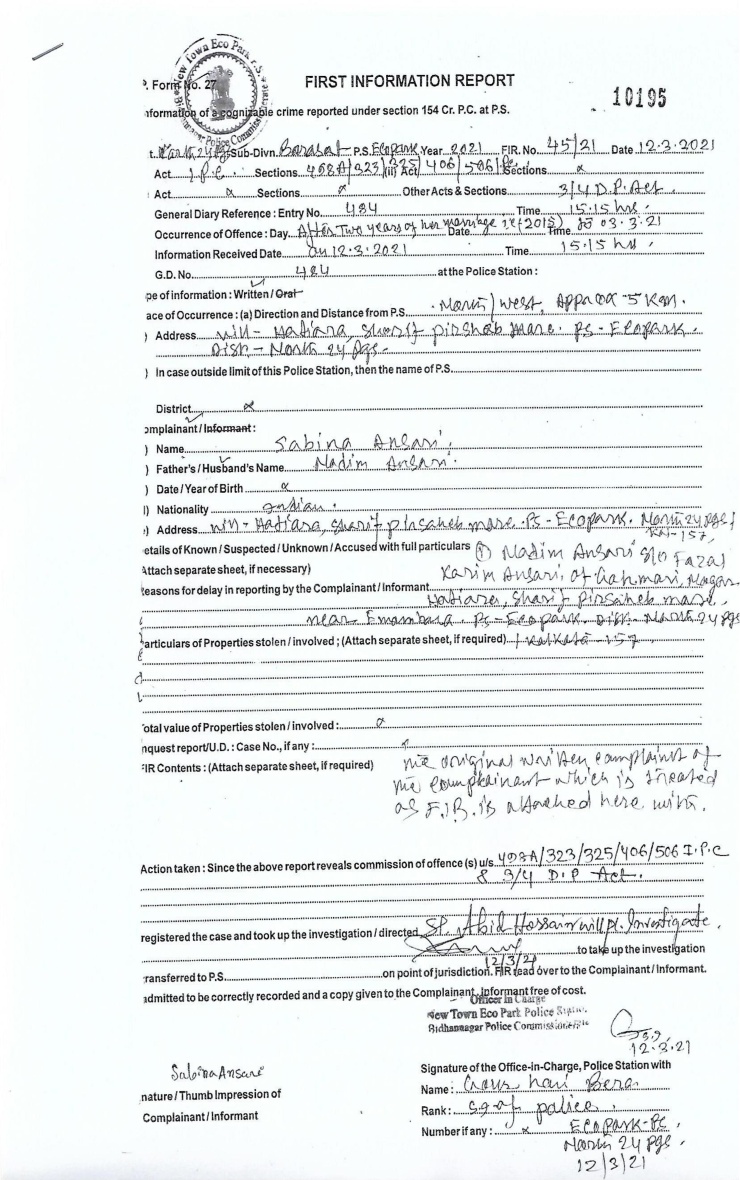 New Town Eco Park P.S.
Bidhannagar Police Commissionerate
P. Form No. 27
FIRST INFORMATION REPORT
10195
nformation of a cognizable crime reported under section 154 Cr. P.C. at P.S.
t. North 24 Pgs Sub-Divn. Barasat P.S. Ecopark Year 2021 FIR. No. 45/21 Date 12.3.2021
Act I.P.C. Sections 498A/323/325/406/506 (ii) Act Sections x
Act x Sections x Other Acts & Sections 3/4 D.P. Act.
General Diary Reference : Entry No. 484 Time 15:15 hrs.
Occurrence of Offence : Day. After Two years of her marriage i.e (2015) Date to 03.3.21 Time
Information Received Date on 12.3.2021 Time 15:15 hrs.
G.D. No. 484 at the Police Station :
pe of information : Written / Oral
ace of Occurrence : (a) Direction and Distance from P.S. North/west, Approx - 5 Km.
) Address Vill - Hatiara, Sharif pirshab mare. PS - Ecopark.
Dist - North 24 Pgs.
) In case outside limit of this Police Station, then the name of P.S.
District x
omplainant / Informant :
) Name Sabina Ansari.
) Father's / Husband's Name Nadim Ansari.
) Date / Year of Birth x
l) Nationality Indian.
) Address Vill - Hatiara, Sharif pirsaheb mare. PS - Ecopark. North 24 Pgs,
Kol-157,
etails of Known / Suspected / Unknown / Accused with full particulars (1) Nadim Ansari S/o Fazal
Attach separate sheet, if necessary) Karim Ansari, of
easons for delay in reporting by the Complainant / Informant
Hatiara, Sharif Pirsaheb mare,
near Emambara PS - Ecopark. Dist - North 24 Pgs
articulars of Properties stolen / involved ; (Attach separate sheet, if required) Kolkata - 157
otal value of Properties stolen / involved : x
nquest report/U.D. : Case No., if any : x
FIR Contents : (Attach separate sheet, if required) The original written complaint of
the complainant which is treated
as F.I.R. is attached here with.
Action taken : Since the above report reveals commission of offence (s) u/s. 498A/323/325/406/506 I.P.C
& 3/4 D.P Act.
registered the case and took up the investigation / directed SI. Abid Hossain will pl. Investigate.
to take up the investigation
12/3/21
ransferred to P.S. on point of jurisdiction. FIR read over to the Complainant / Informant.
admitted to be correctly recorded and a copy given to the Complainant, Informant free of cost.
Officer in Charge
New Town Eco Park Police Station
Bidhannagar Police Commissionerate
12.3.21
Sabina Ansari
nature / Thumb Impression of
Complainant / Informant
Signature of the Office-in-Charge, Police Station with
Name : Gour Hari Bera
Rank : S.I of police
Number if any : x Ecopark - PS
North 24 Pgs.
12/3/21